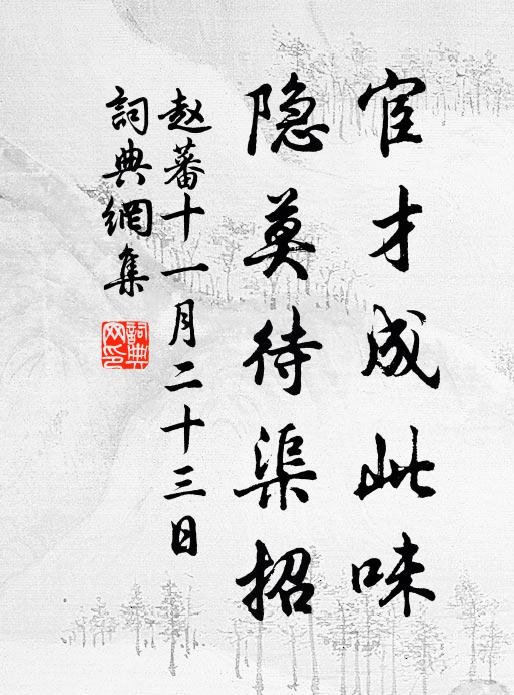 宦才成此味
隐莫待渠招
赵蕃十一月二十三日
詞典網集
詞典网印